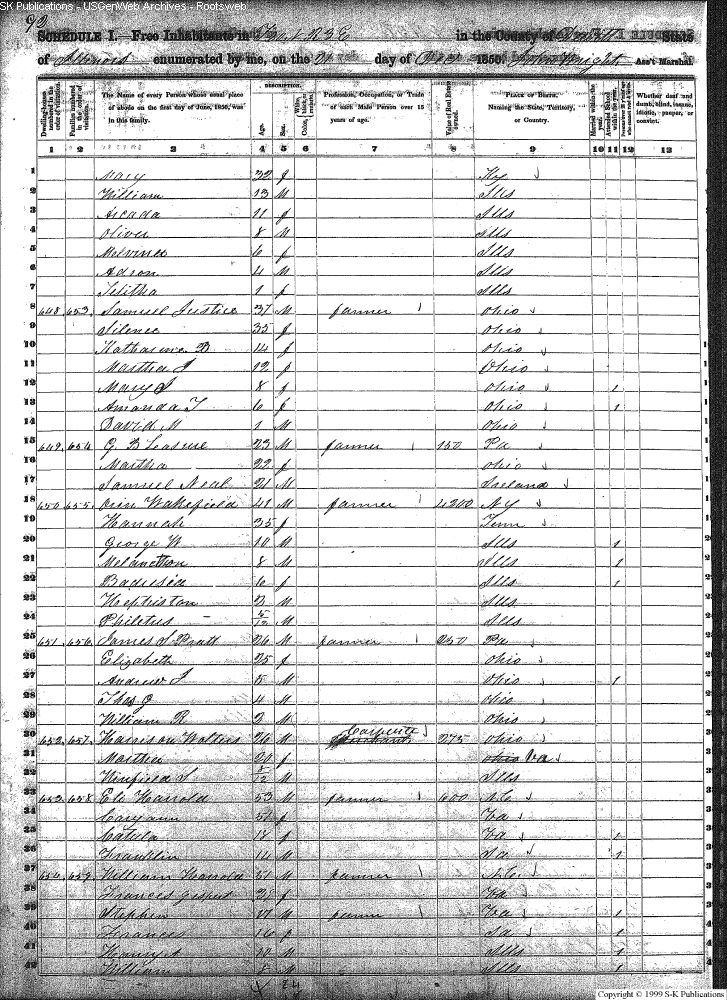 SK Publications - USGenWeb Archives - Rootsweb
92
SCHEDULE I.—Free Inhabitants in in the County of State
of Illinois enumerated by me, on the 21 day of 1850. Wright Ass't Marshal.
Dwelling-houses numbered in the order of visitation.
Families numbered in the order of visitation.
The Name of every Person whose usual place of abode on the first day of June, 1850, was in this family.
DESCRIPTION.
Age.
Sex.
Color, White, black, or mulatto.
Profession, Occupation, or Trade of each Male Person over 15 years of age.
Value of Real Estate owned.
PLACE OF BIRTH. Naming the State, Territory, or Country.
Married within the year.
Attended School within the year.
Whether deaf and dumb, blind, insane, idiotic, pauper, or convict.
1 2 3 4 5 6 7 8 9 10 11 12 13
1 Mary 32 f Ky
2 William 13 M Ills
3 Arcada 11 f Ills
4 Oliver 8 M Ills
5 Melvina 6 f Ills
6 Adron 4 M Ills
7 Telitha 1 f Ills
8 648 653 Samuel Justice 37 M farmer Ohio
9 Silence 35 f Ohio
10 Katharine B 14 f Ohio
11 Martha J 12 f Ohio
12 Mary J 8 f Ohio 1
13 Amanda T 6 f Ohio 1
14 David M 1 M Ohio
15 649 654 G B Leasure 23 M farmer 150 Pa
16 Martha 22 f Ohio
17 Samuel Neal 21 M Ireland
18 650 655 Orin Wakefield 41 M farmer 4200 N Y
19 Hannah 35 f Tenn
20 George W 10 M Ills 1
21 Melancthon 8 M Ills 1
22 6 f Ills 1
23 Hephistan 2 M Ills
24 Philetus 5/12 M Ills
25 651 656 James S Pratt 26 M farmer 250 Pa
26 Elizabeth 25 f Ohio
27 Andrew J 5 M Ohio 1
28 Thos J 4 M Ohio
29 William R 2 M Ohio
30 652 657 Harrison Walters 26 M Carpenter 275 Ohio
31 Martha 20 f Ohio Va
32 Winfield S /12 M Ills
33 653 658 Eli Harrold 53 M farmer 600 N.C.
34 Caryann f Va
35 Catula 18 f Va 1
36 Franklin 14 M 1
37 654 659 William Harrold 51 M farmer N.C.
38 Frances f Va
39 Stephen 17 M farmer Va 1
40 Frances 16 f 1
41 10 M Ills 1
42 William 8 M Ills 1
Copyright © 1999 S-K Publications